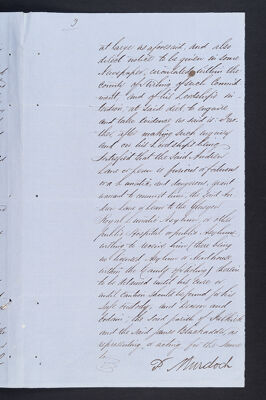 3
at large as aforesaid, and also
direct notice to be given in some
Newspaper, circulated within the
County of Stirling of such Commit-
ment and of his Lordship's in-
tention, at said diet to enquire
and take evidence as said is: Fur-
ther, after making such inquiry
and on his Lordship's being
satisfied that the said Andrew
Law or Lean is furious or fatuous
or a Lunatic, and dangerous, grant
warrant to commit him, the said An-
drew Law or Lean to the Glasgow
Royal Lunatic Asylum, or other
public Hospital or public Asylum
willing to receive him (there being
no licensed Asylum or Madhouse
within the County of Stirling) therein
to be detained until his cure or
until caution should be found for his
safe custody, and decern and
ordain the said parish of Falkirk
and the said James
representing, or acting for the same
to
P. Murdoch